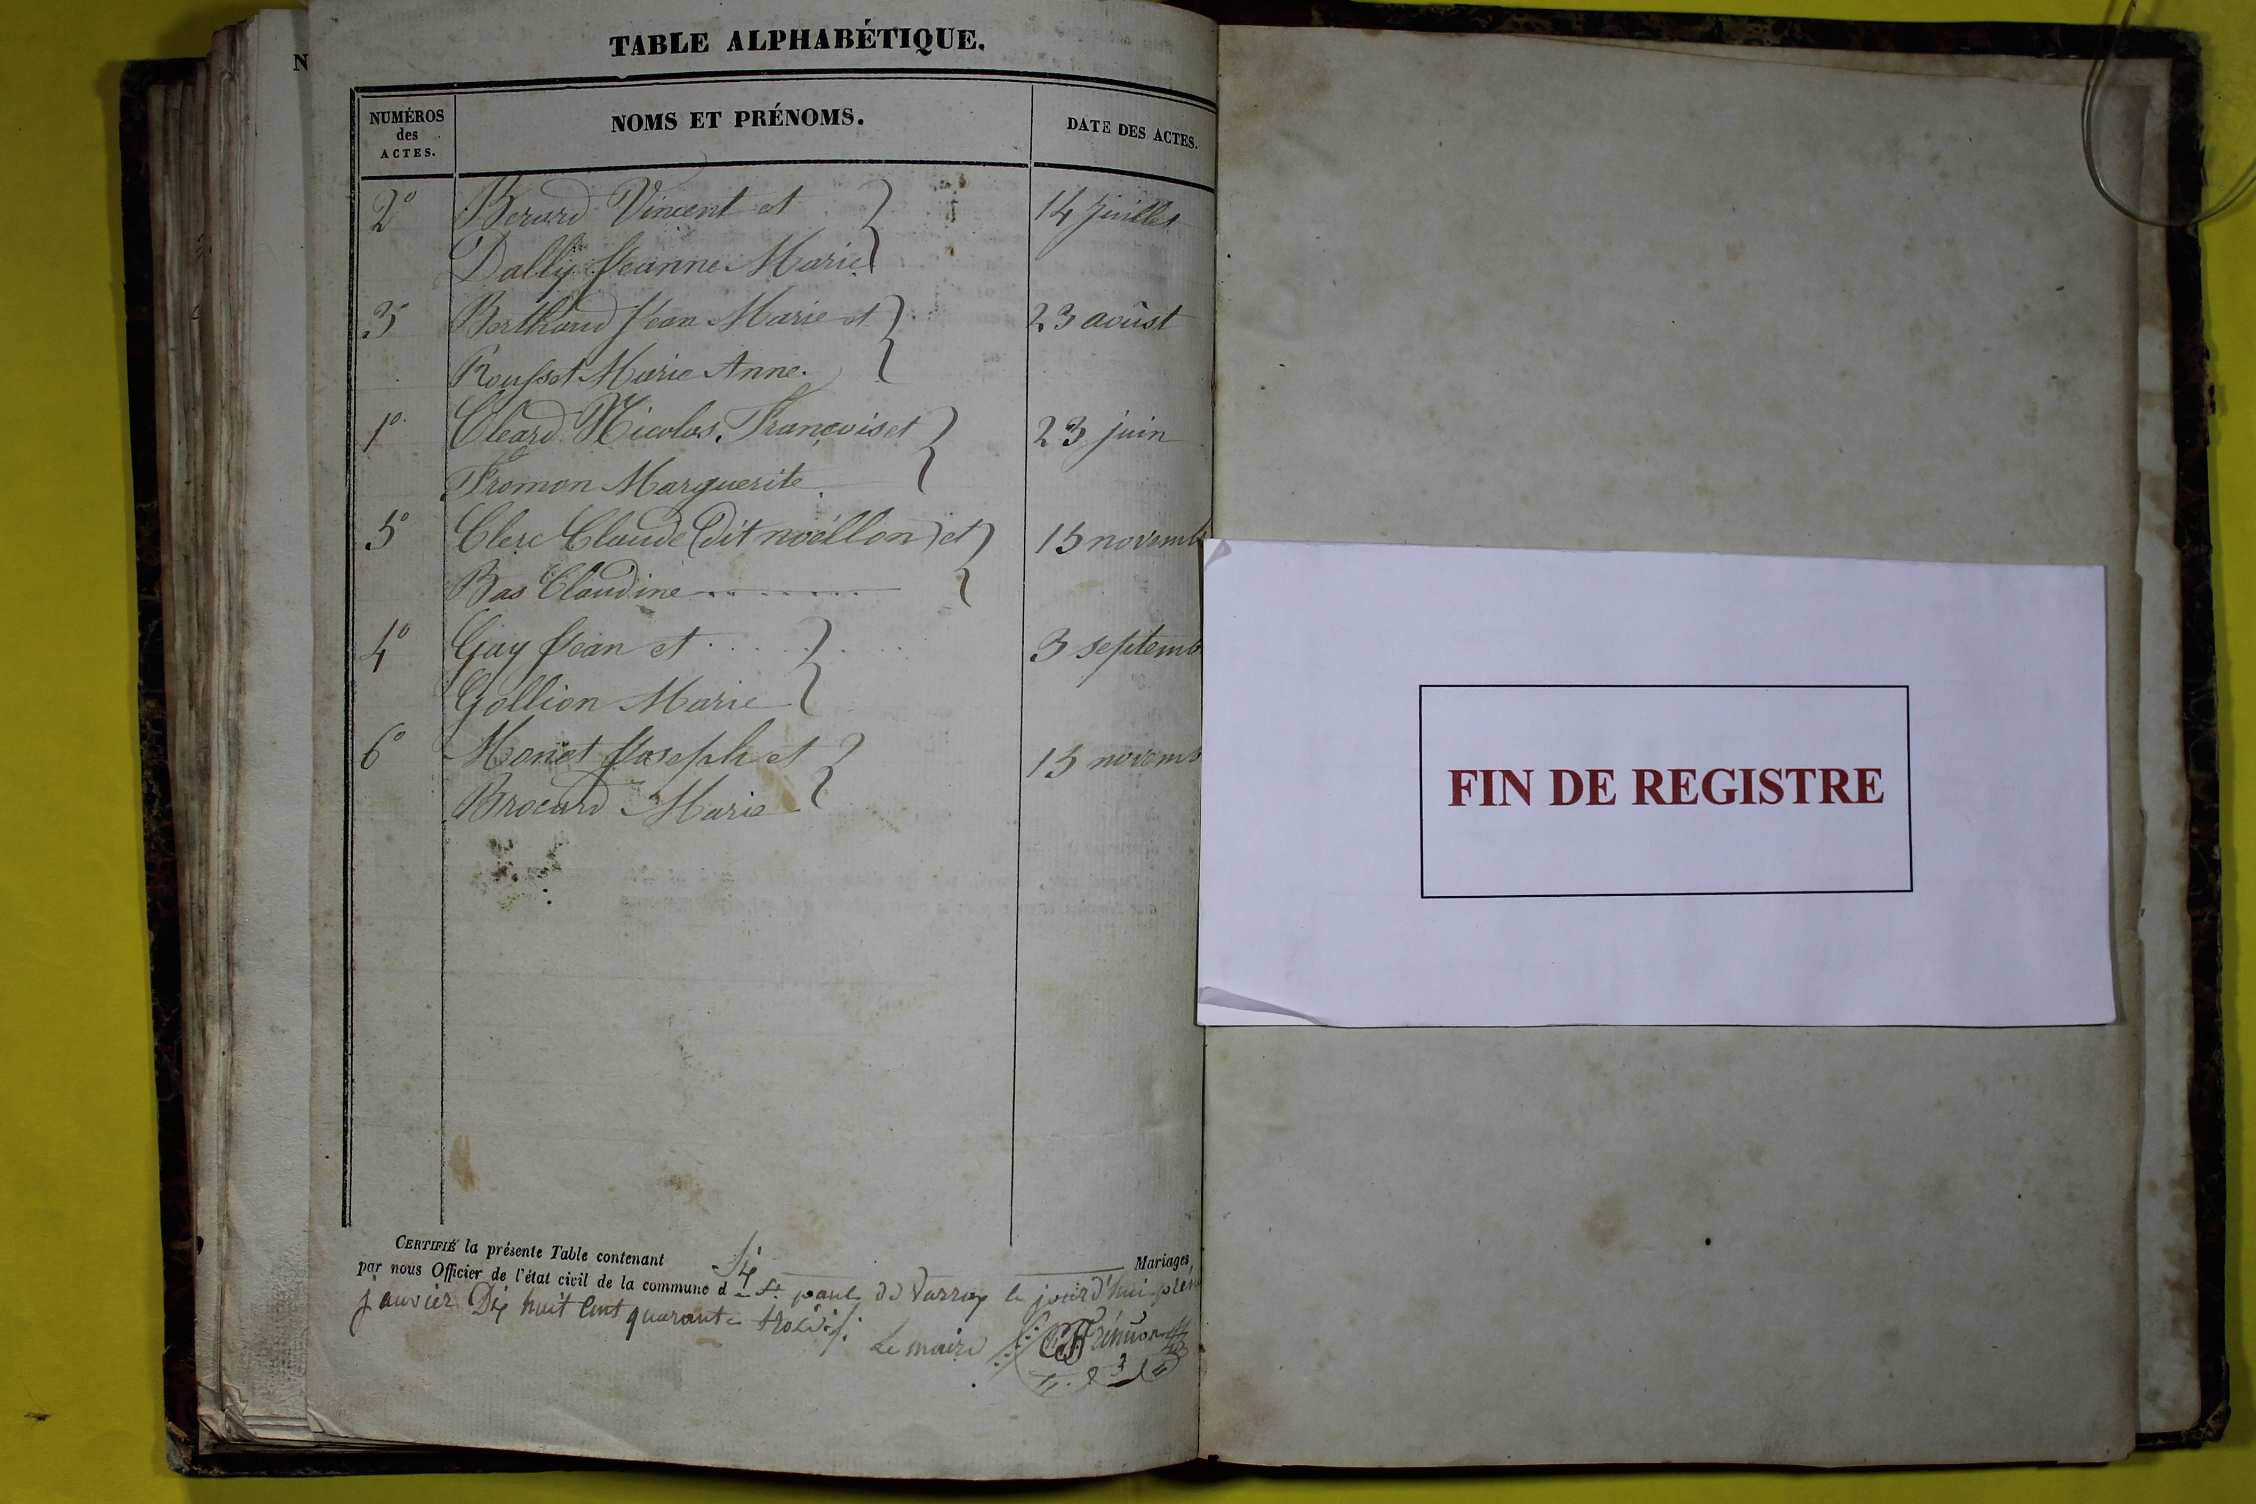 N
TABLE ALPHABÉTIQUE.
NUMÉROS
des
ACTES.
NOMS ET PRÉNOMS.
DATE DES ACTES.
2° Berard Vincent et 14 juillet
Dally Jeanne Marie
3° Berthaud Jean Marie et 23 aoûst
Rousset Marie Anne.
1° Cléard Nicolas François et 23 juin
Fromon Marguerite
5° Clerc Claude (dit noëllon) et 15 novemb
Bas Claudine
4° Guy Jean et 3 septemb
Gollion Marie
6° Monet Joseph et 15 novemb
Brocard Marie
CERTIFIÉ la présente Table contenant Six Mariages,
par nous Officier de l'état civil de la commune d St paul de Varrax le jourd'hui
janvier Dix huit cent quarante trois
Le maire
FIN DE REGISTRE